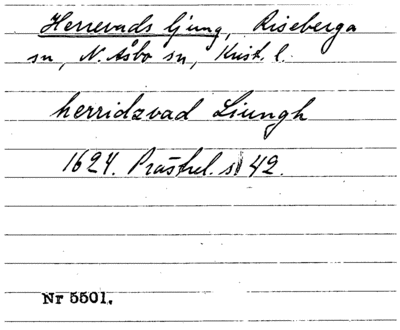 Herrevads ljung, Riseberga
sn, N. Åsbo sn, Krist. l.
herridzvad Liungh
1624. Prästrel. s 42.
Nr 5501.